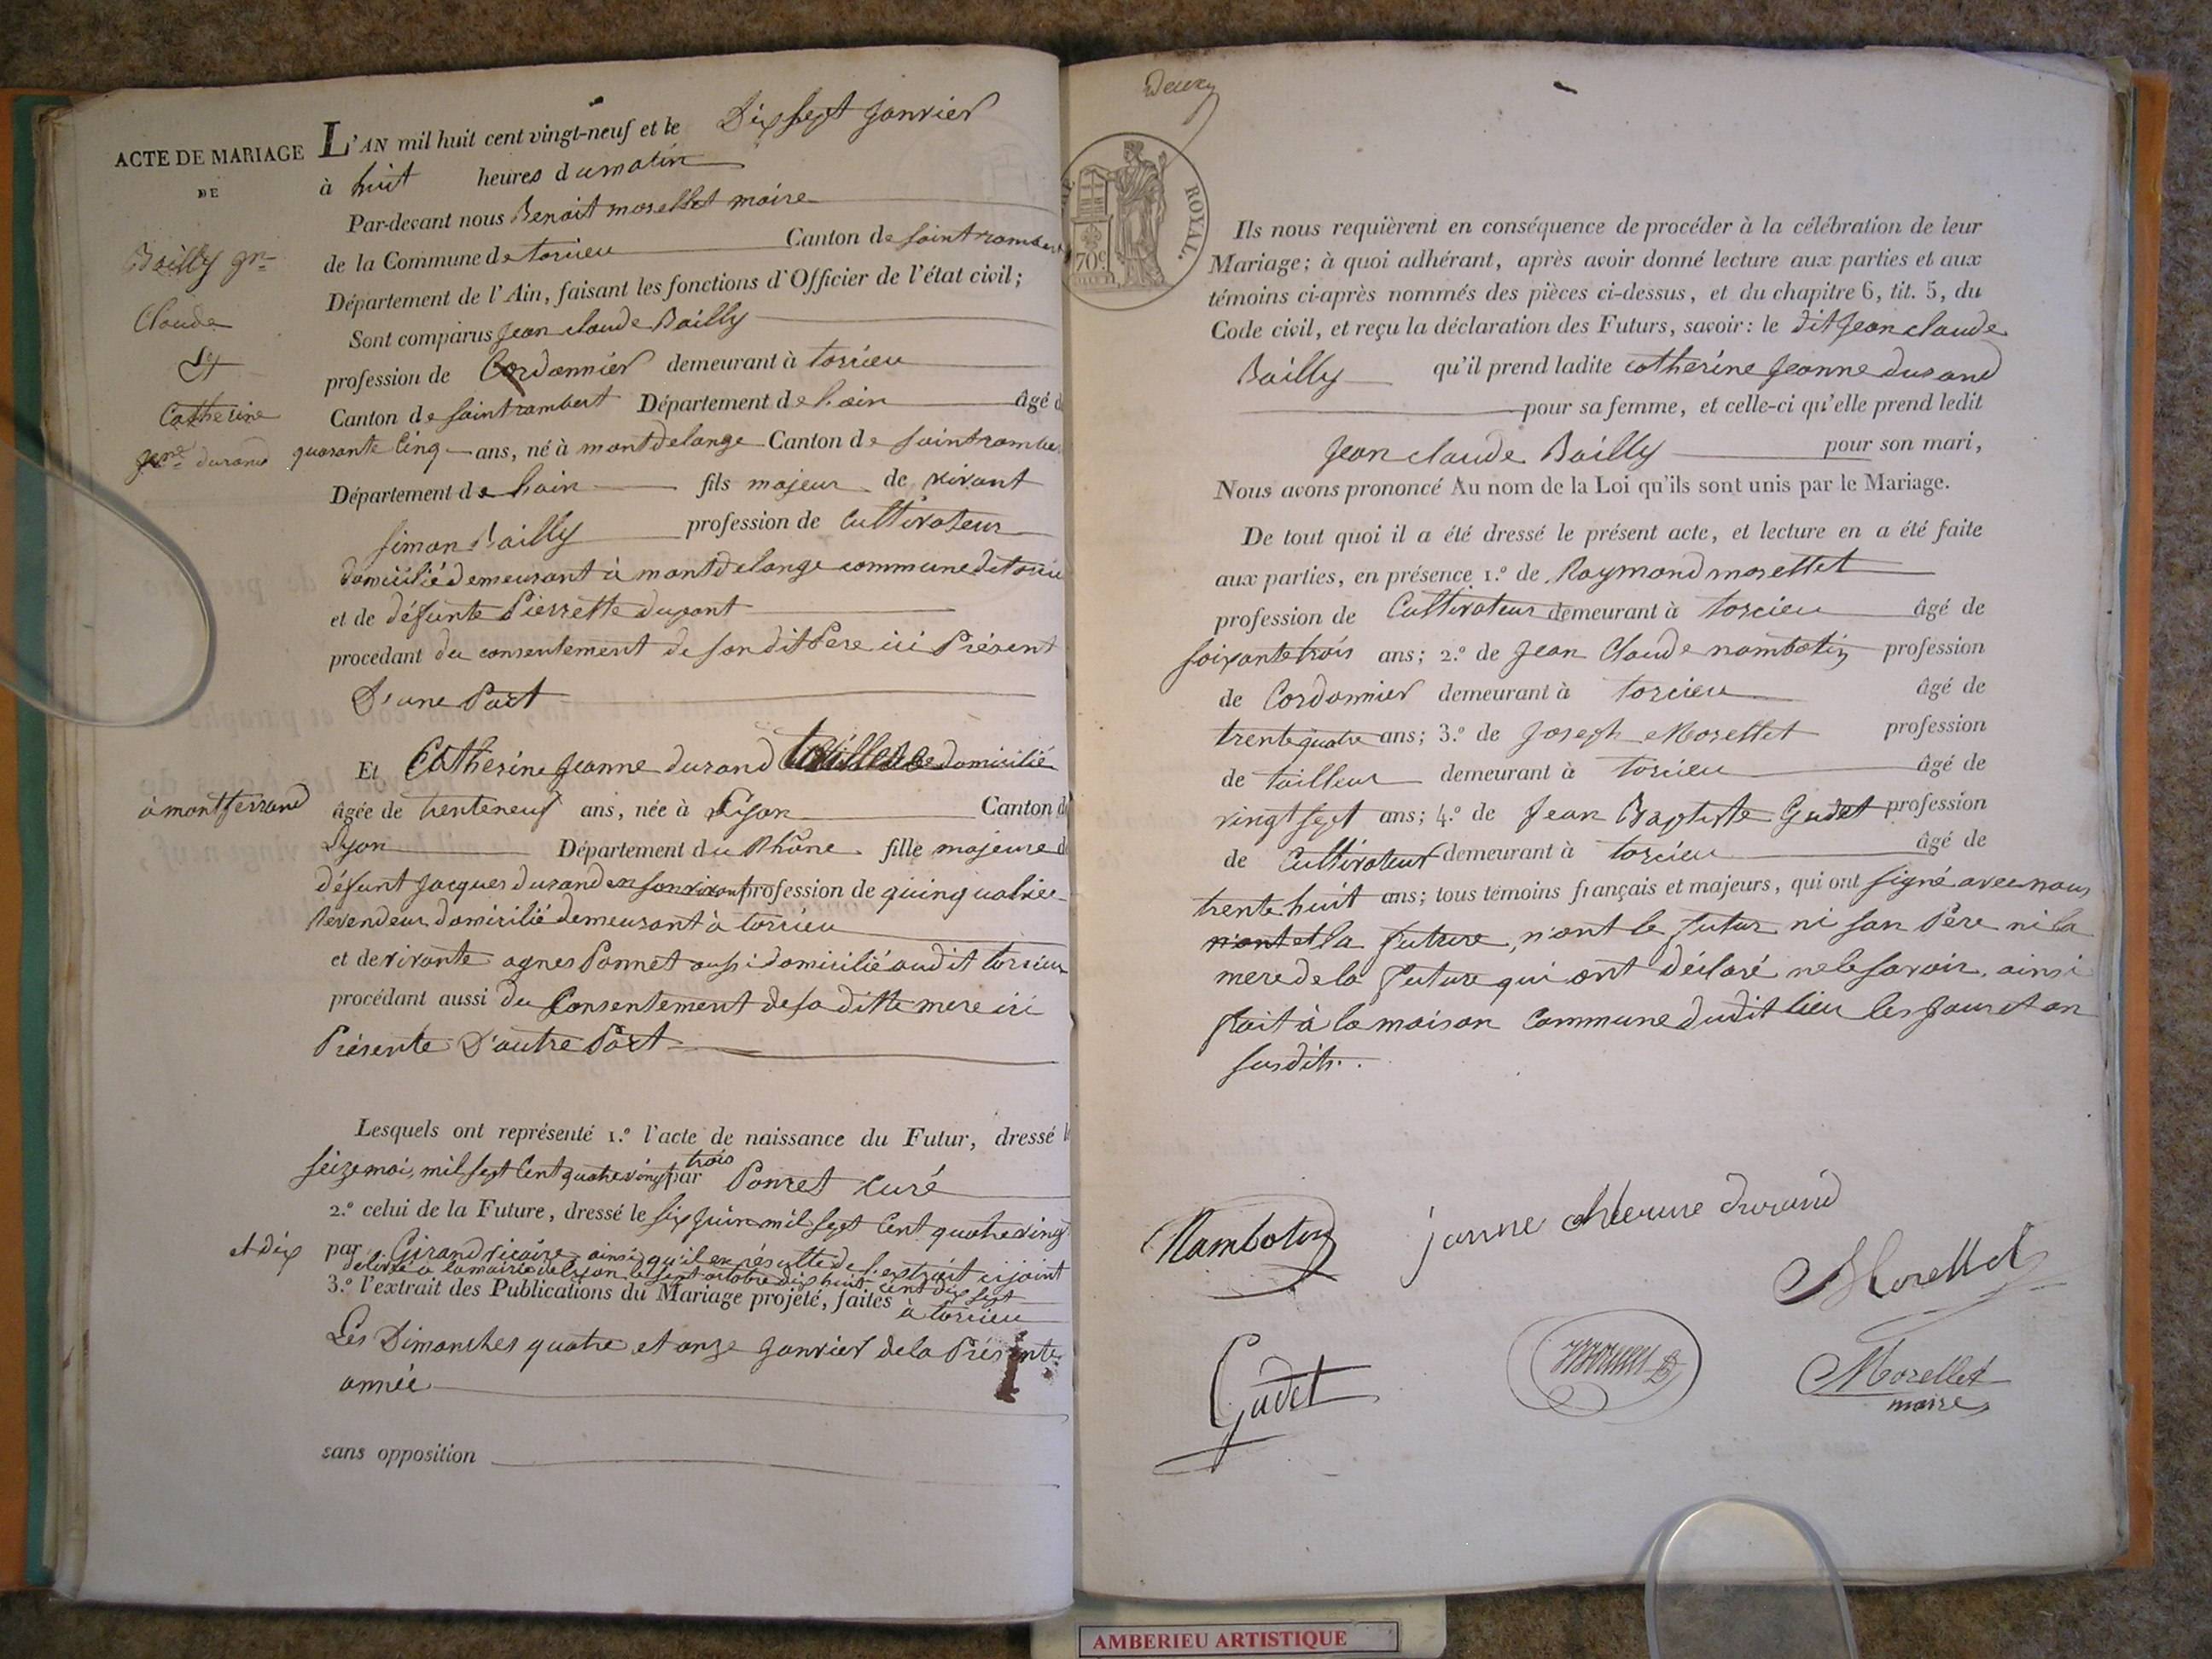 ACTE DE MARIAGE
DE
Bailly Jn
Claude
Et
Catherine
Jne durand
L'AN mil huit cent vingt-neuf et le Dix sept Janvier
à huit heures du matin
Par-devant nous Benoit morellet maire
de la Commune de torcieu Canton de saint rambert
Département de l'Ain, faisant les fonctions d'Officier de l'état civil;
Sont comparus Jean claude Bailly
profession de Cordonnier demeurant à torcieu
Canton de saint rambert Département de l'ain âgé d
quarante Cinq ans, né à montdelange Canton de saint rambe
Département de l'ain fils majeur de vivant
simon Bailly profession de Cultivateur
domicilié demeurant à montdelange commune de torcieu
et de défunte Pierrette dupont
procédant du consentement de son dit Pere ici Présent
D'une Part
Et Catherine Jeanne durand domicilié
à montferrand
âgée de trente neuf ans, née à Lyon Canton d
Lyon Département du Rhône fille majeure d
défunt Jacques durand en son vivant profession de quinquallier
Revendeur domicilié demeurant à torcieu
et de vivante agnes Ponnet aussi domicilié au dit torcieu
procédant aussi du Consentement de sa ditte mere ici
Présente D'autre Part
Lesquels ont représenté 1.º l'acte de naissance du Futur, dressé l
seize mai, mil sept Cent quatre vingt trois par Ponret curé
2.º celui de la Future, dressé le six juin mil sept Cent quatre vingt
et dix
par Girand vicaire ainsi qu'il en résulte de l'extrait ci joint
delivré à la mairie de Lyon le sept octobre dix huit cent dix sept
3.º l'extrait des Publications du Mariage projeté, faites à torcieu
Les Dimanches quatre et onze Janvier de la Présente
année
sans opposition
ROYAL.
70c
Ils nous requièrent en conséquence de procéder à la célébration de leur
Mariage; à quoi adhérant, après avoir donné lecture aux parties et aux
témoins ci-après nommés des pièces ci-dessus, et du chapitre 6, tit. 5, du
Code civil, et reçu la déclaration des Futurs, savoir: le dit Jean claude
Bailly qu'il prend ladite catherine Jeanne durand
pour sa femme, et celle-ci qu'elle prend ledit
Jean claude Bailly pour son mari,
Nous avons prononcé Au nom de la Loi qu'ils sont unis par le Mariage.
De tout quoi il a été dressé le présent acte, et lecture en a été faite
aux parties, en présence 1.º de Raymond morellet
profession de Cultivateur demeurant à torcieu âgé de
soixante trois ans; 2.º de Jean Claude nambotin profession
de Cordonnier demeurant à torcieu âgé de
trente quatre ans; 3.º de Joseph Morellet profession
de tailleur demeurant à torcieu âgé de
vingt sept ans; 4.º de Jean Baptiste Gudet profession
de Cultivateur demeurant à torcieu âgé de
trente huit ans; tous témoins français et majeurs, qui ont signé avec nous
n'ont et la future, n'ont le futur ni son Père ni la
mere de la future qui ont déclaré ne le savoir, ainsi
fait à la maison Commune dudit lieu les jour et an
susdits.
Nambotin
janne durand
Morellet
Gudet
Morellet
maire
AMBERIEU ARTISTIQUE